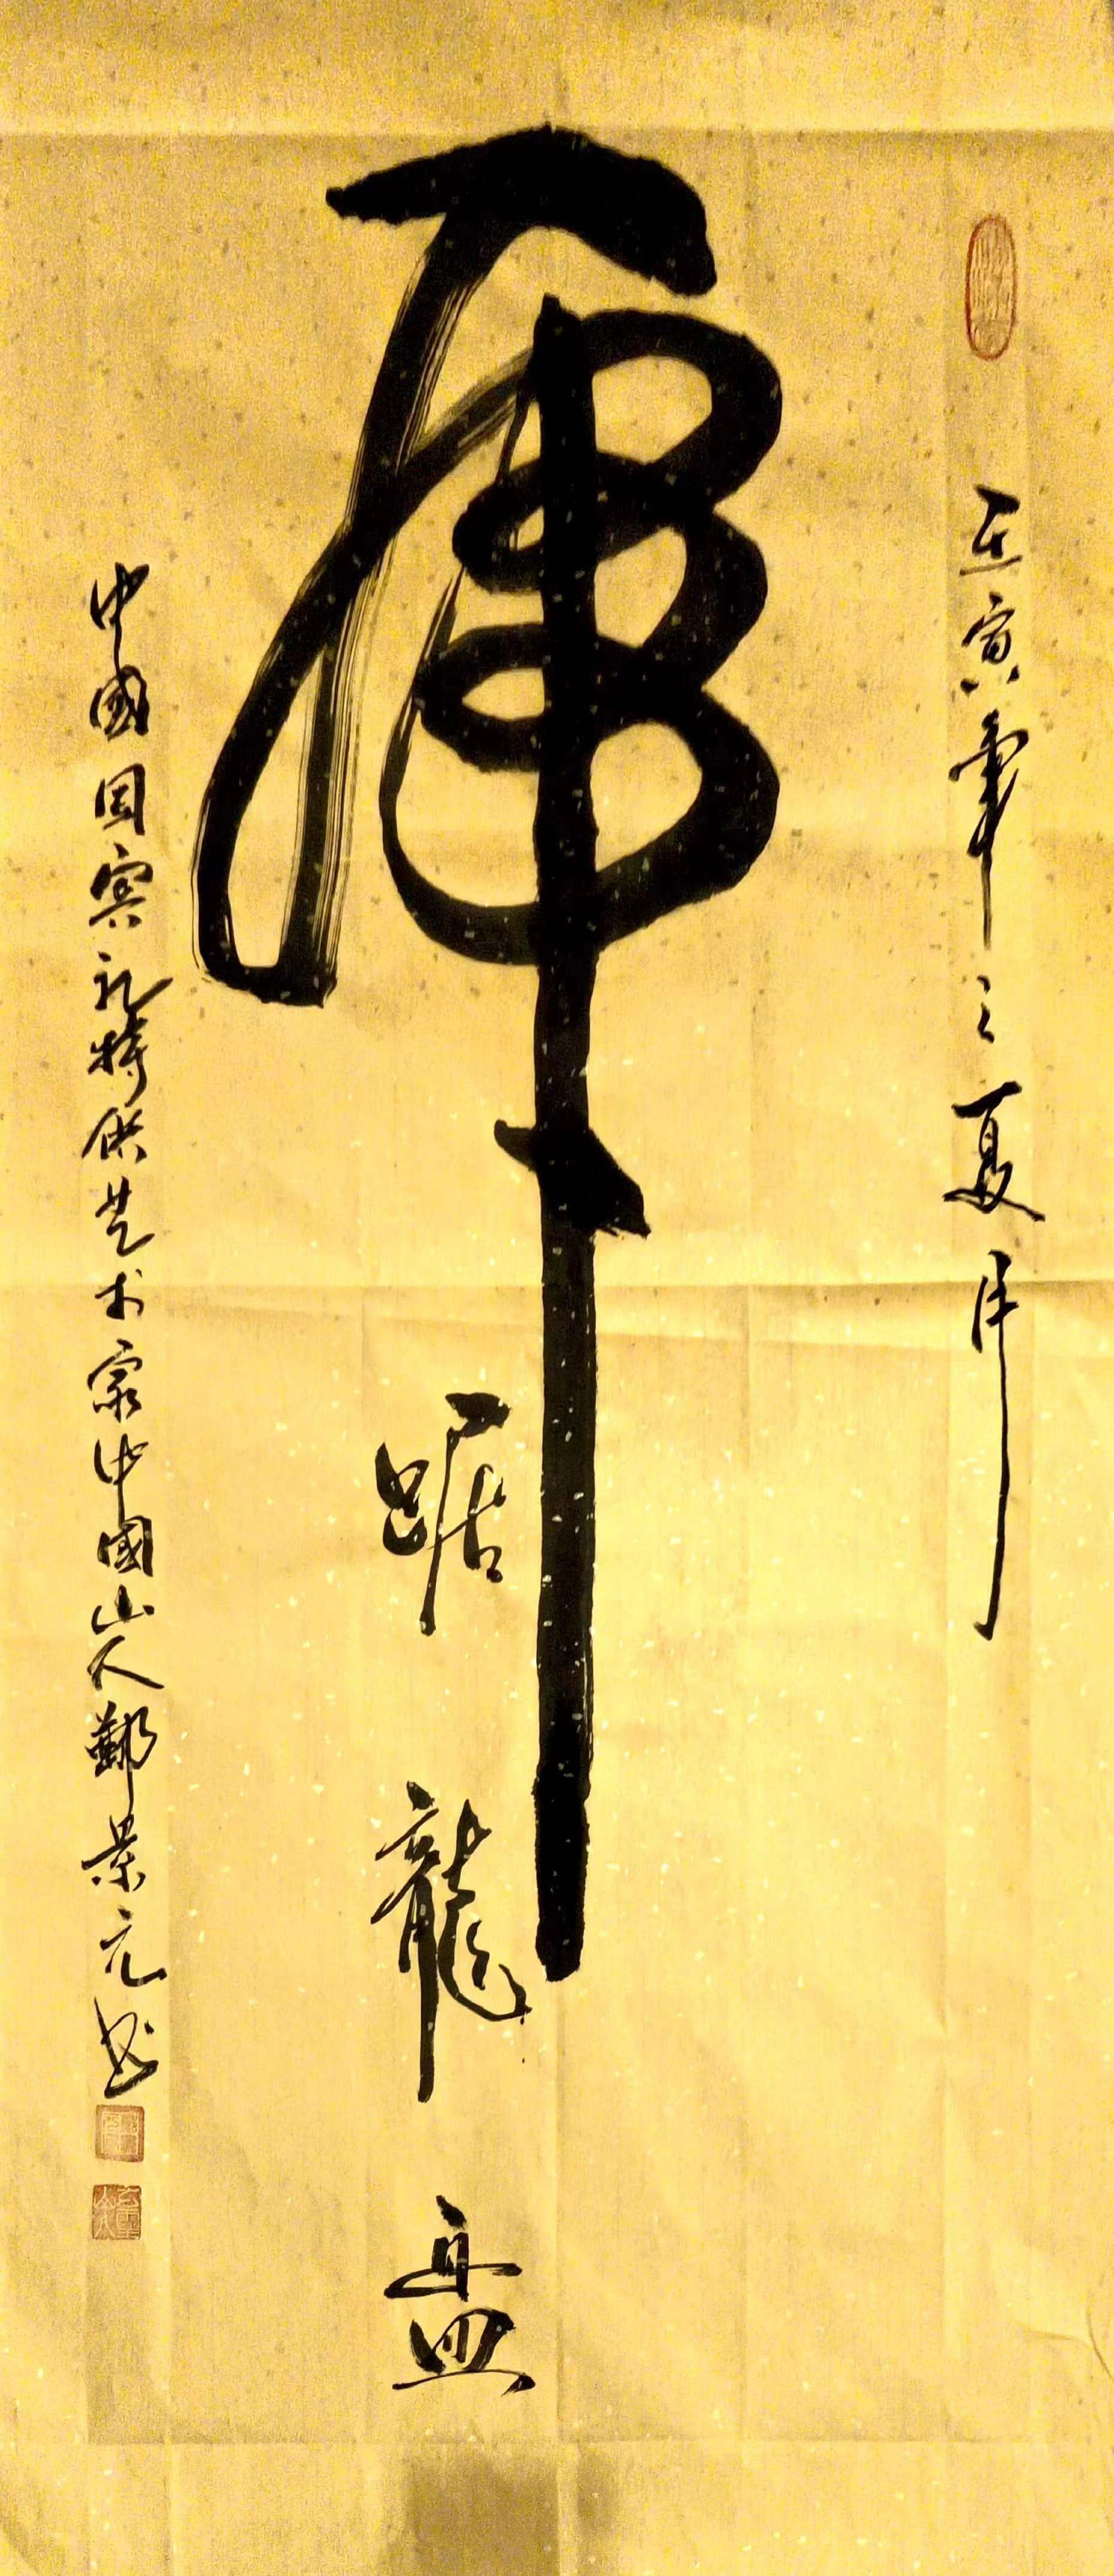 壬寅年之夏月
虎
踞龍盘
中國国宾礼特供艺术家中國山人鄭景元书